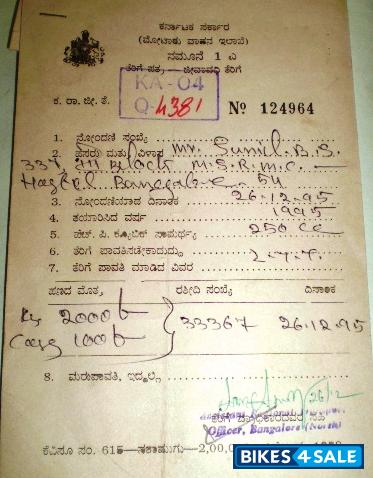 ಕರ್ನಾಟಕ ಸರ್ಕಾರ
(ಮೋಟಾರು ವಾಹನ ಇಲಾಖೆ)
ನಮೂನೆ 1 ಎ
ತೆರಿಗೆ ಪತ್ರ - ಜೀವಾವಧಿ ತೆರಿಗೆ
KA-04
Q-4381
ಕ. ರಾ. ಜೀ. ತೆ.
Nº 124964
1. ನೋಂದಣಿ ಸಂಖ್ಯೆ
2. ಹೆಸರು ಮತ್ತು ವಿಳಾಸ Mr. Sunil. B.S.
337, Block M.S.R.M.C.
Hostel Bangalore 54
3. ನೋಂದಣಿಯಾದ ದಿನಾಂಕ 26.12.95
4. ತಯಾರಿಸಿದ ವರ್ಷ 1995
5. ಹೆಚ್. ಪಿ. ಕ್ಯೂಬಿಕ್ ಸಾಮರ್ಥ್ಯ 250 CC
6. ತೆರಿಗೆ ಪಾವತಿಸಬೇಕಾದುದ್ದು
7. ತೆರಿಗೆ ಪಾವತಿ ಮಾಡಿದ ವಿವರ
ಹಣದ ಮೊತ್ತ ರಶೀದಿ ಸಂಖ್ಯೆ ದಿನಾಂಕ
2000
33367 26.12.95
Cess 100
8. ಮರುಪಾವತಿ, ಇದ್ದಲ್ಲಿ
26/12
Officer, Bangalore (North)
BIKES4SALE